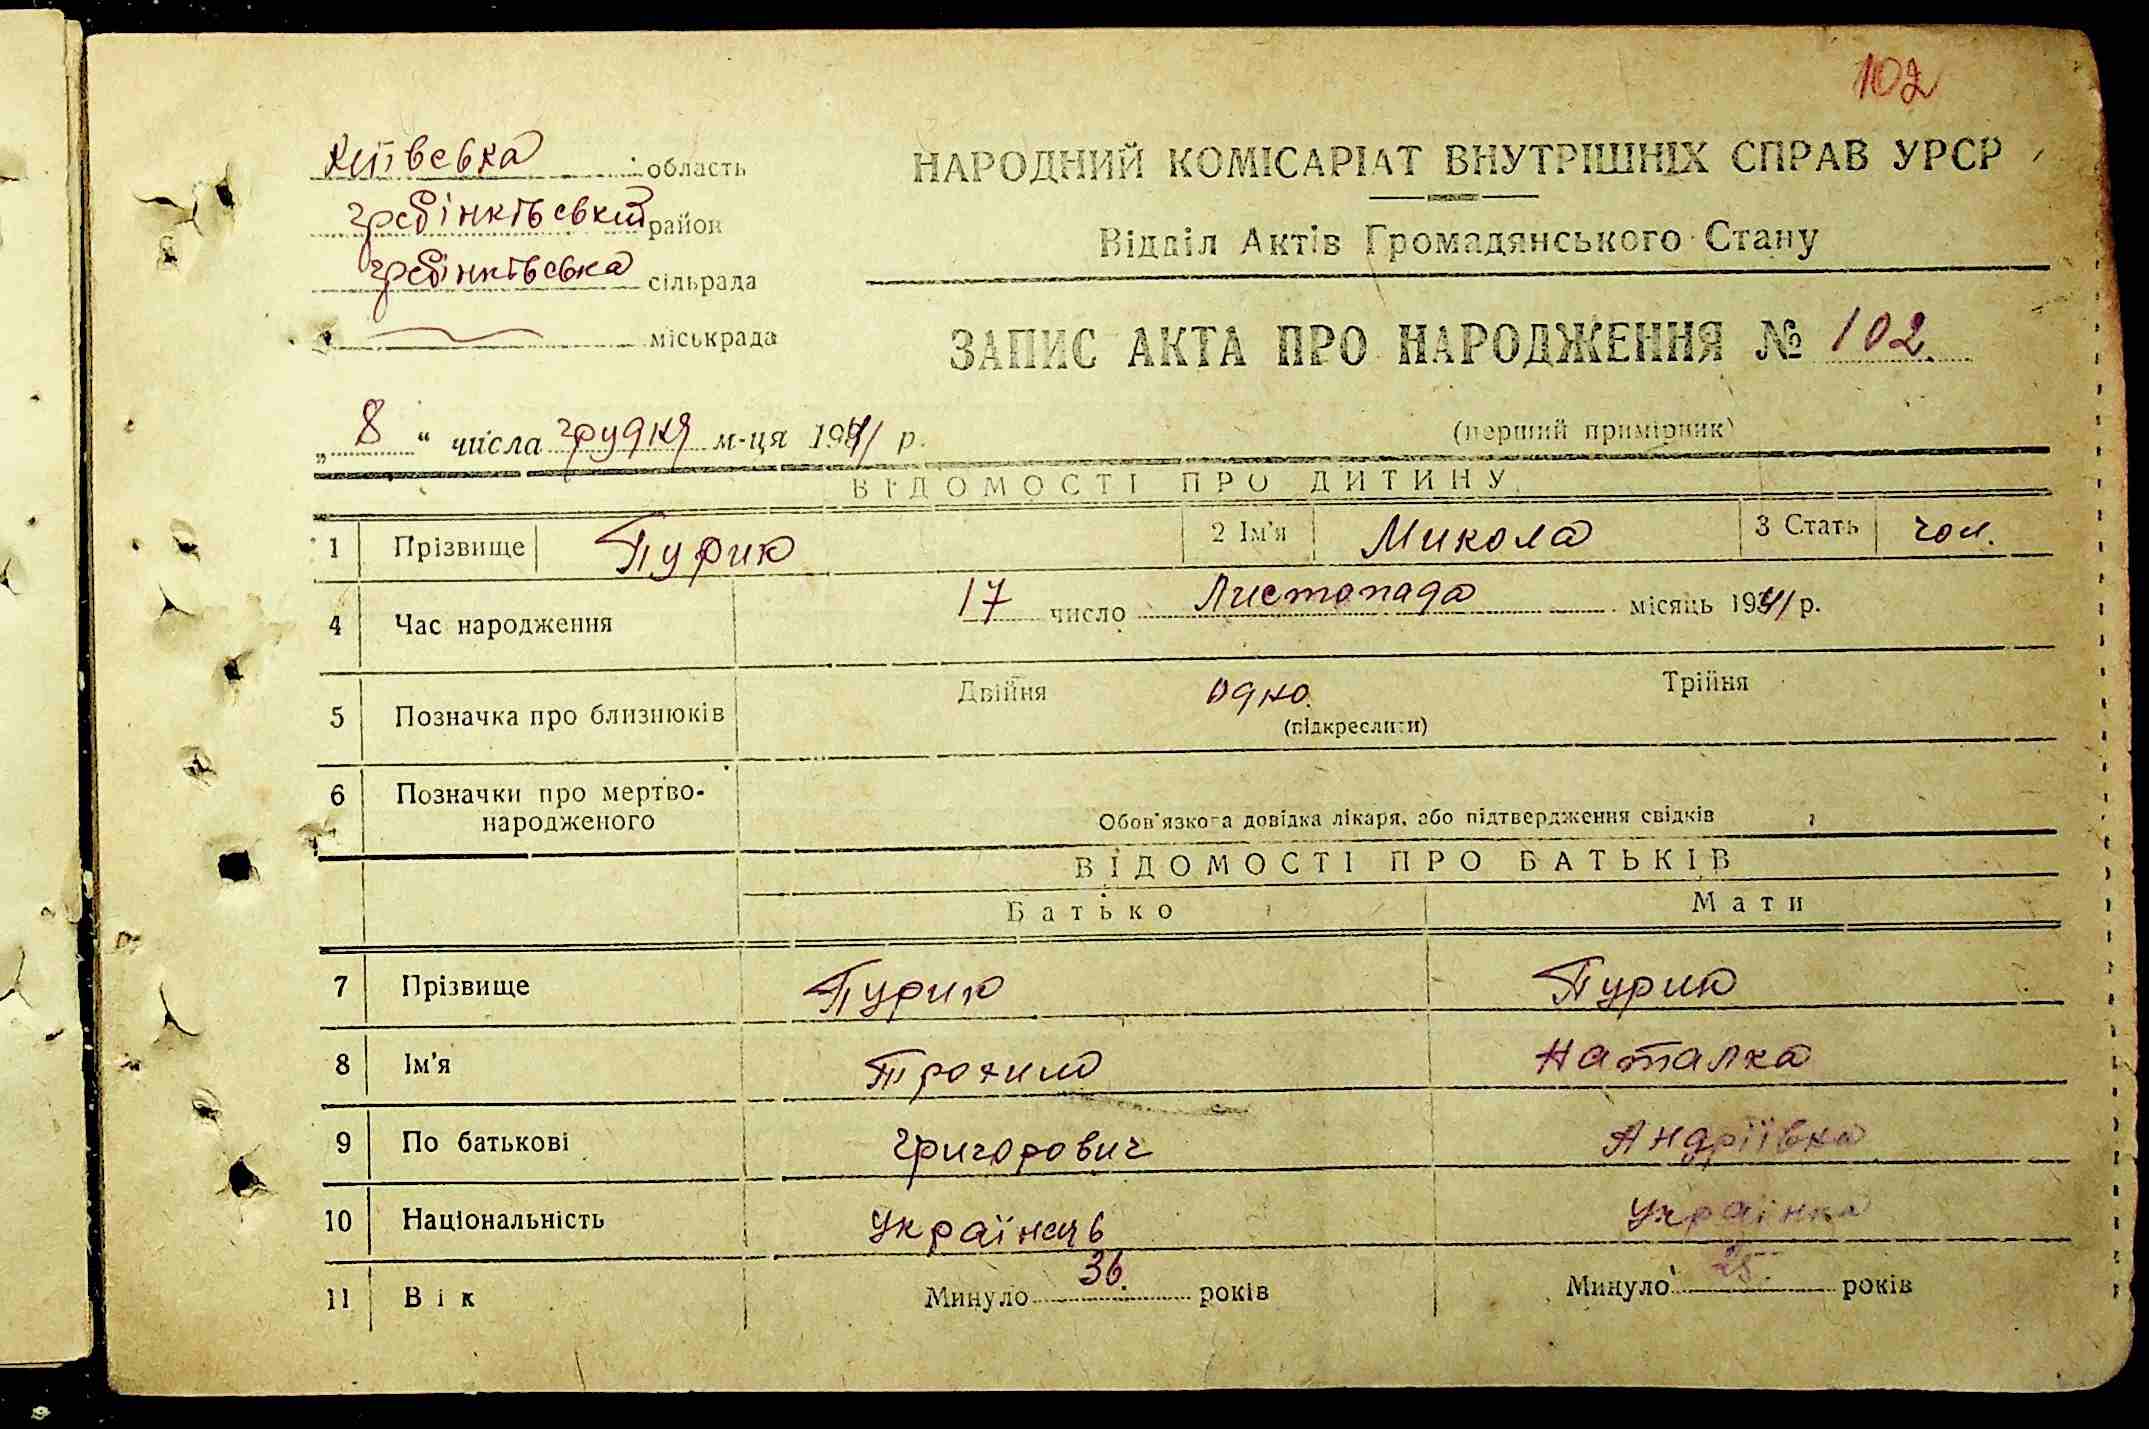 102
Київська область
НАРОДНИЙ КОМІСАРІАТ ВНУТРІШНІХ СПРАВ УРСР
гребінківський район
Відділ Актів Громадянського Стану
гребінківська сільрада
міськрада
ЗАПИС АКТА ПРО НАРОДЖЕННЯ № 102
„8“ числа грудня м-ця 1941 р.
(перший примірник)
ВІДОМОСТІ ПРО ДИТИНУ
1 Прізвище Пурик 2 Ім'я Микола 3 Стать чол.
4 Час народження 17 число Листопада місяць 1941 р.
5 Позначка про близнюків Двійня одно. Трійня
(підкреслити)
6 Позначки про мертво-
народженого Обов'язкова довідка лікаря, або підтвердження свідків
ВІДОМОСТІ ПРО БАТЬКІВ
Батько Мати
7 Прізвище Пурик Пурик
8 Ім'я Трохим Наталка
9 По батькові Григорович Андріївна
10 Національність Українець Українка
11 Вік Минуло 36. років Минуло 25 років